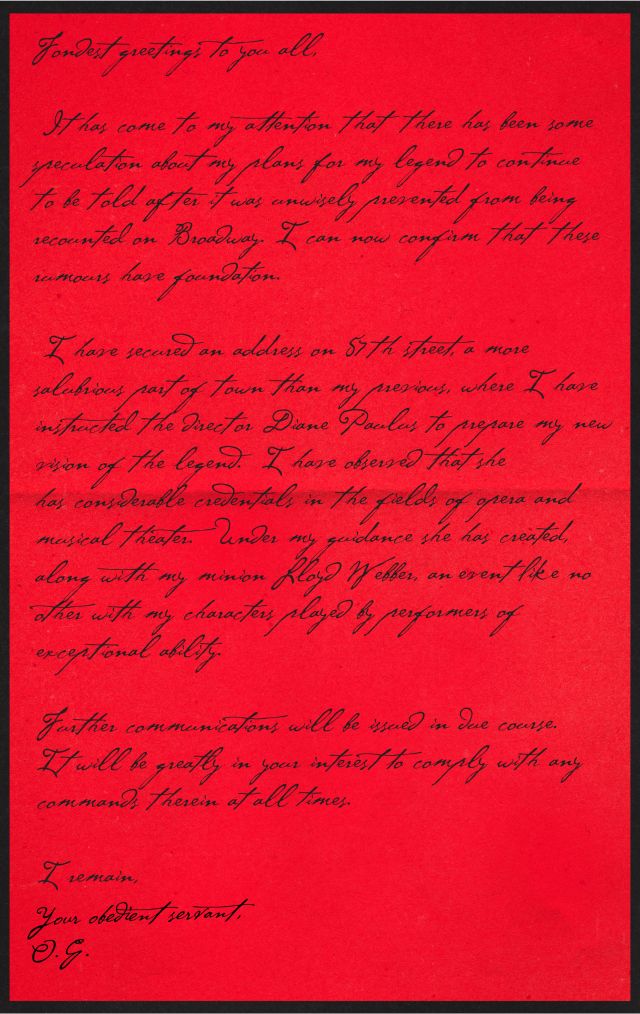 Fondest greetings to you all,
It has come to my attention that there has been some
speculation about my plans for my legend to continue
to be told after it was unwisely prevented from being
recounted on Broadway. I can now confirm that these
rumours have foundation.
I have secured an address on 57th street, a more
salubrious part of town than my previous, where I have
instructed the director Diane Paulus to prepare my new
vision of the legend. I have observed that she
has considerable credentials in the fields of opera and
musical theater. Under my guidance she has created,
along with my minion Lloyd Webber, an event like no
other with my characters played by performers of
exceptional ability.
Further communications will be issued in due course.
It will be greatly in your interest to comply with any
commands therein at all times.
I remain,
Your obedient servant,
O.G.